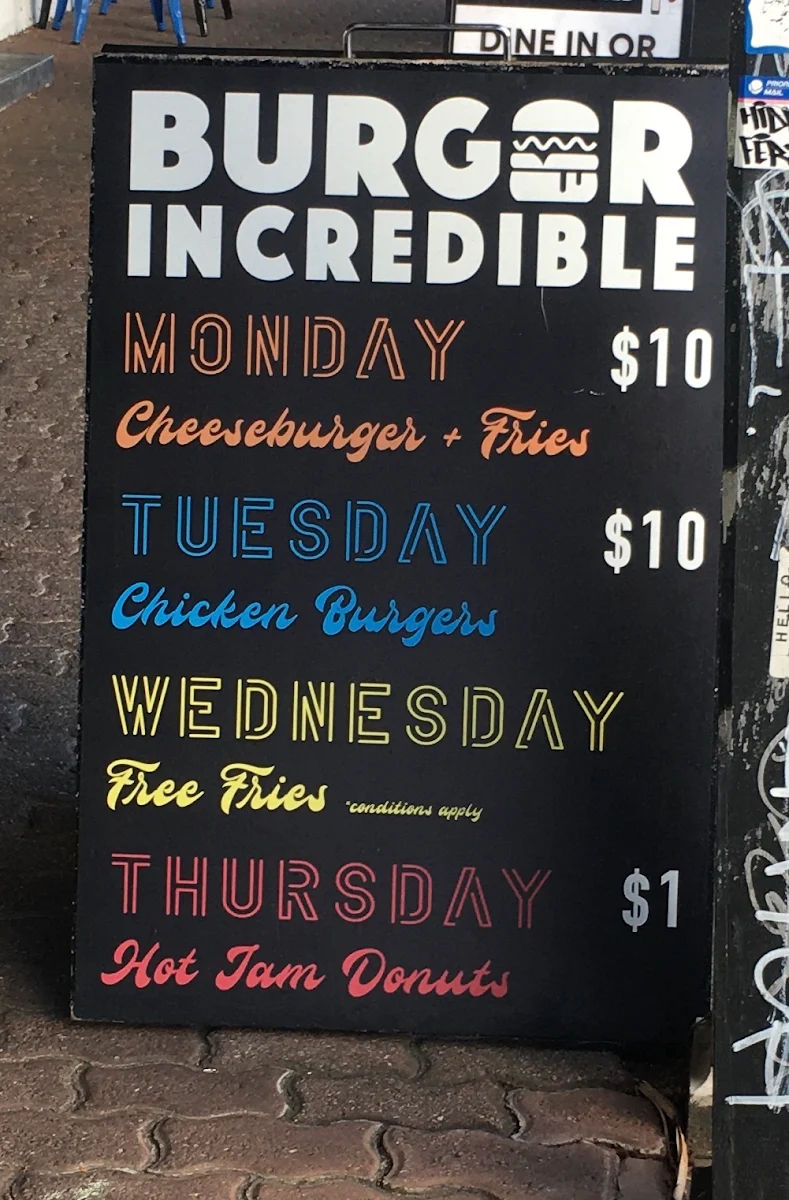 DINE IN OR
BURGER
INCREDIBLE
MONDAY $10
Cheeseburger + Fries
TUESDAY $10
Chicken Burgers
WEDNESDAY
Free Fries *conditions apply
THURSDAY $1
Hot Jam Donuts
PRIORITY
MAIL
HELLO